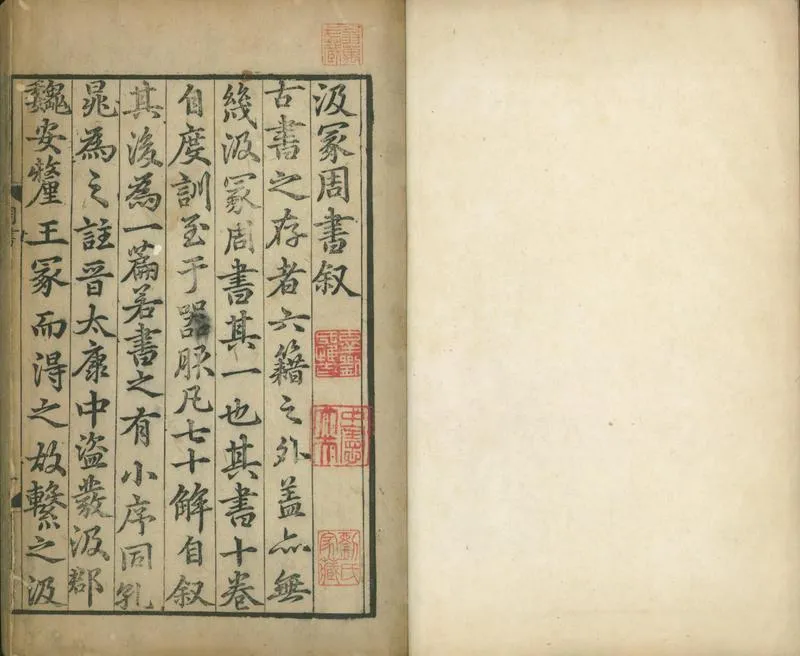 汲冢周書叙
古書之存者六籍之外盖亦無
幾汲冢周書其一也其書十卷
自度訓至于器服凡七十解自叙
其後為一篇若書之有小序同孔
晁為之註晋太康中盗發汲郡
魏安釐王冢而得之故繋之汲
劉氏
家藏